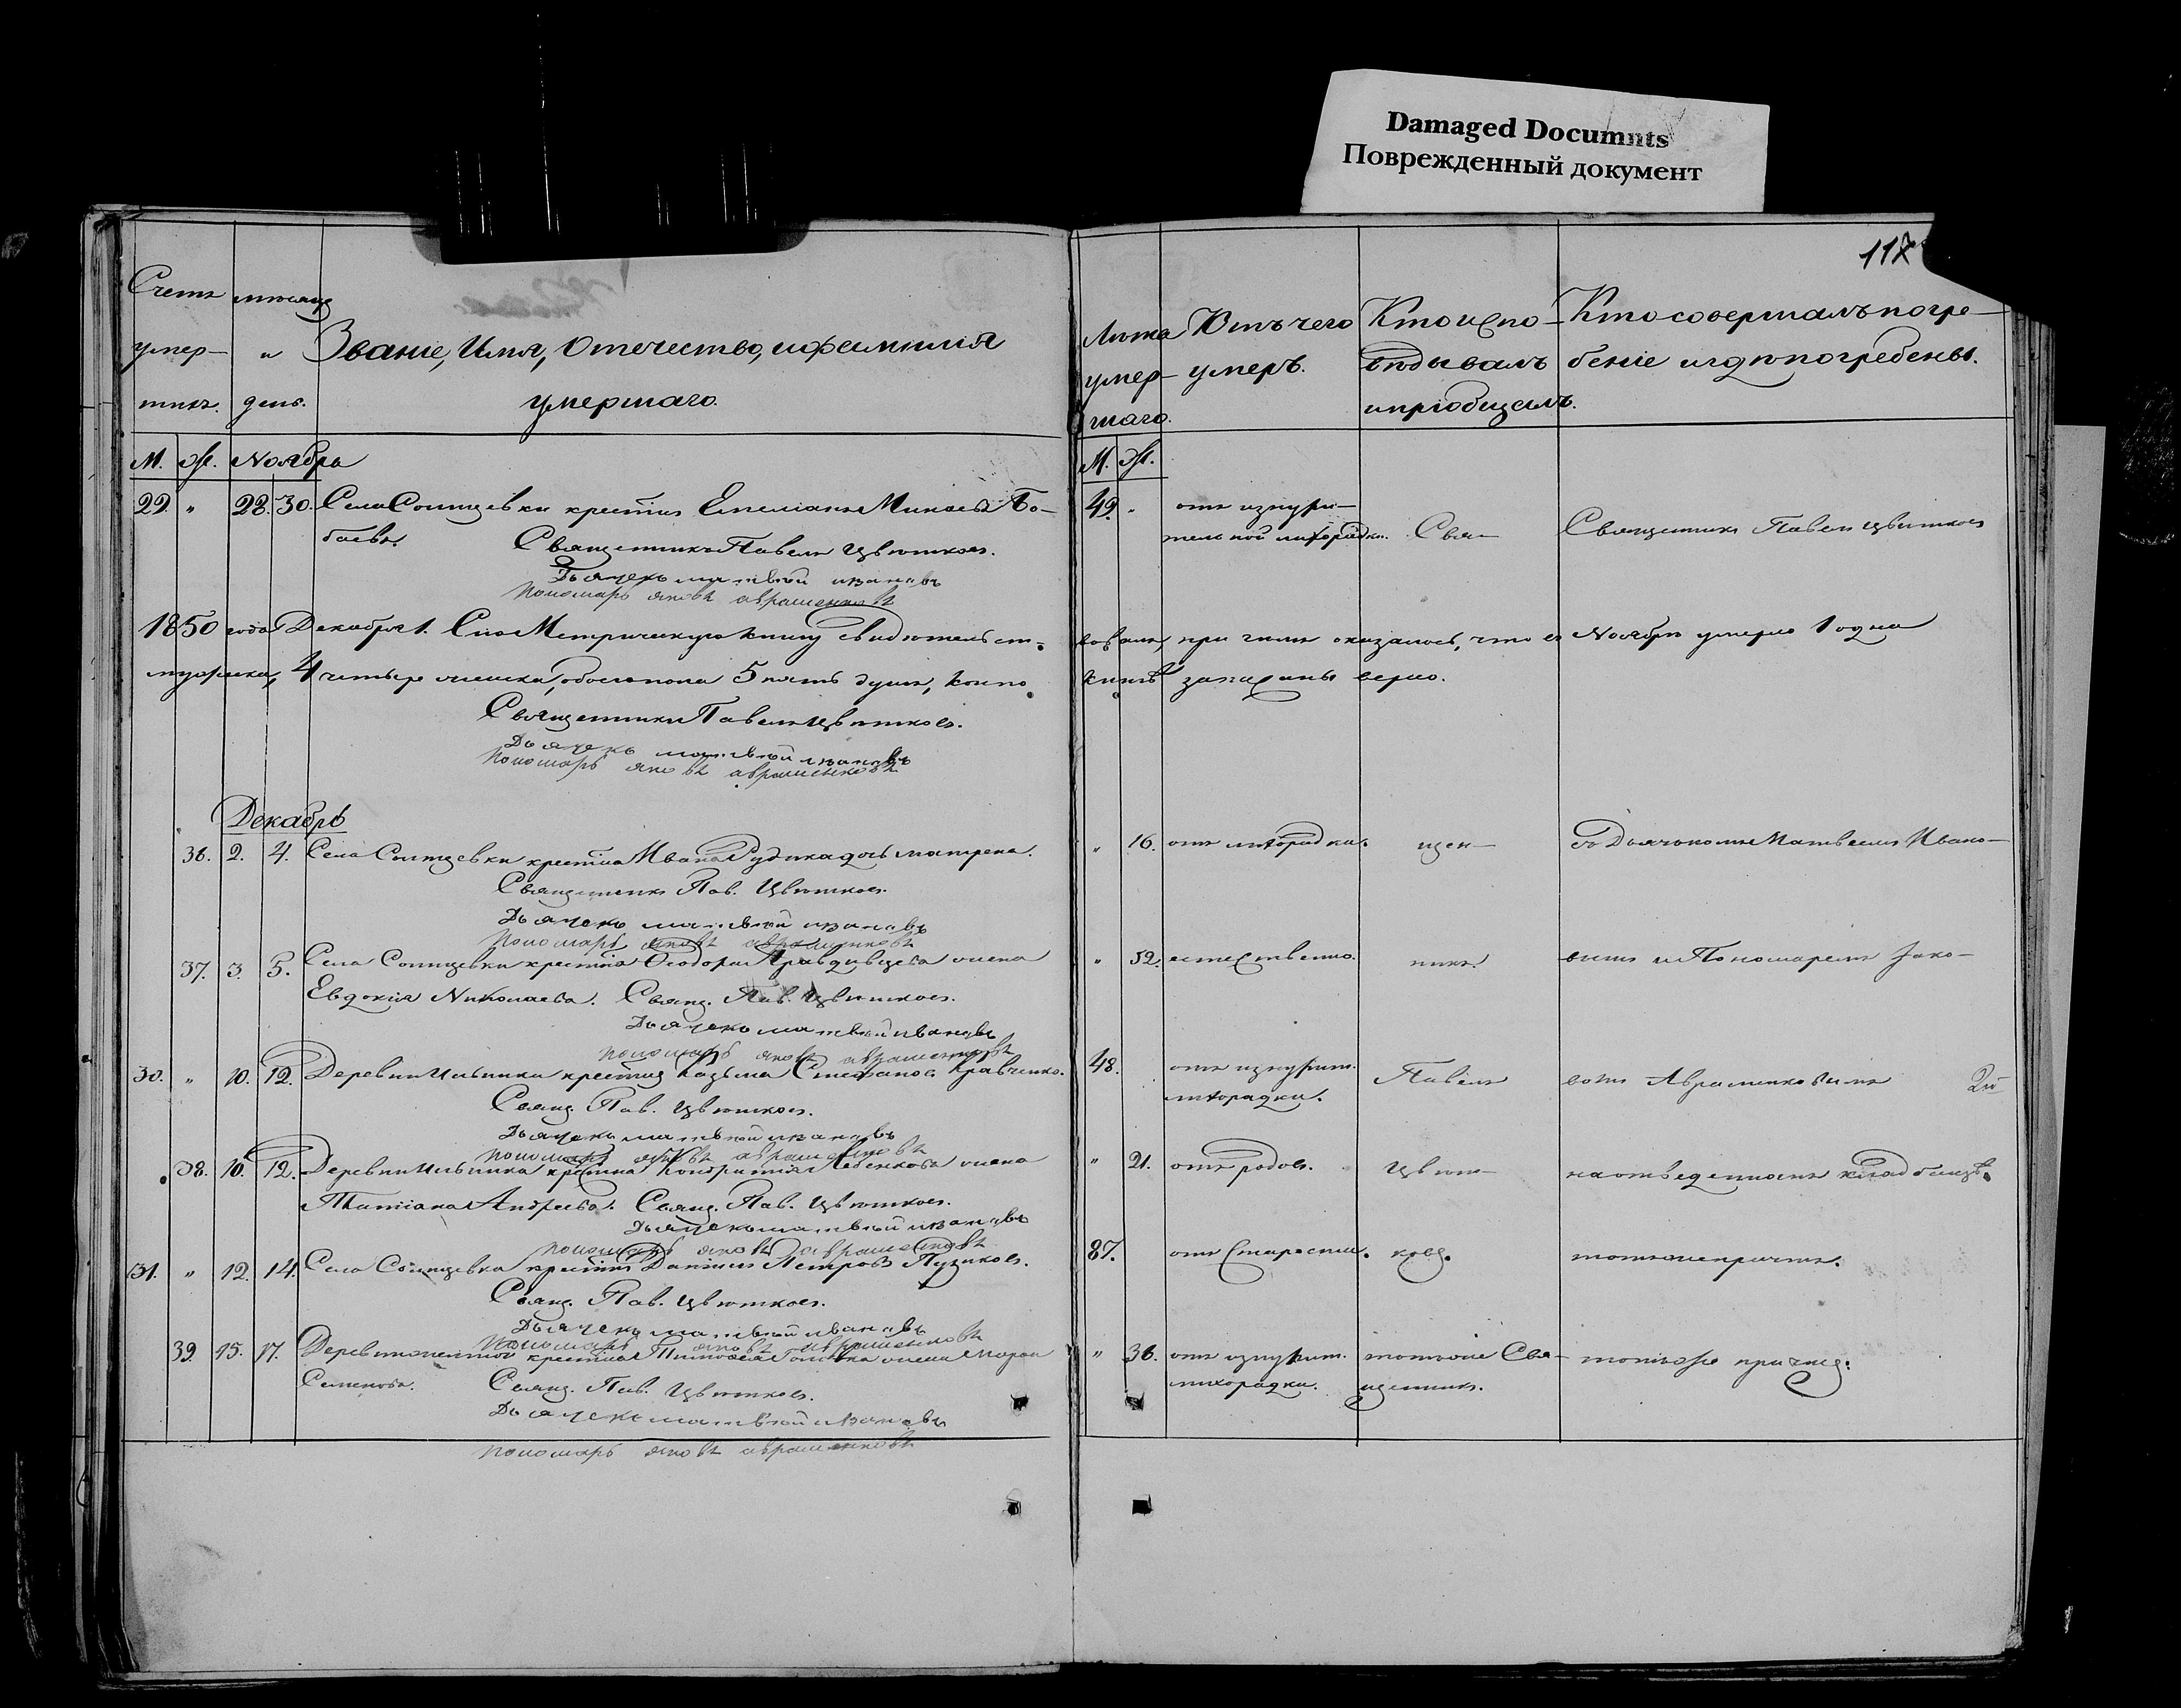 Damaged Documnts
Поврежденный документ
118
Счетъ
умер-
шихъ.
мѣсяцъ
и
день.
Званіе, Имя, Отечество, и фамилія
умершаго.
М. Ж. Ноябрь
29. " 28. 30. Села Солнцевки крестьян. Емеліанъ Минаевъ Бо-
баевъ. Священникъ Павелъ Цвѣтковъ.
Дьячекъ матвѣй ивановъ
пономарь яковъ авраменковъ
1850 года Декабря 1. Сію Метрическую книгу свидѣтельст-
мужеска, 4 четыре женска, обоего пола 5 пять душъ, кои по
Священникъ Павелъ Цвѣтковъ.
Дьячекъ матвѣй ивановъ
пономарь яковъ авраменковъ
Декабрь
36. 2. 4. Села Солнцевки крестьян. Ивана дочь матрена.
Священникъ Пав. Цвѣтковъ.
Дьячекъ матвѣй ивановъ
пономарь яковъ авраменковъ
37. 3. 5. Села Солнцевки крестьян. Ѳеодора жена
Евдокія Николаева. Свящ. Пав. Цвѣтковъ.
Дьячекъ матвѣй ивановъ
пономарь яковъ авраменковъ
30. " 10. 12. Деревни Ильинки крестьян. Козьма Стефановъ Кравченко.
Свящ. Пав. Цвѣтковъ.
Дьячекъ матвѣй ивановъ
пономарь яковъ авраменковъ
38. 10. 12. Деревни Ильинки крестьян. Кондратія жена
Татіана Андреева. Свящ. Пав. Цвѣтковъ.
Дьячекъ матвѣй ивановъ
пономарь яковъ авраменковъ
31. " 12. 14. Села Солнцевки крестьян. Даніилъ Петровъ Пузиковъ.
Свящ. Пав. Цвѣтковъ.
Дьячекъ матвѣй ивановъ
пономарь яковъ авраменковъ
39. 15. 17. крестьян. жена
Семенова. Свящ. Пав. Цвѣтковъ.
Дьячекъ матвѣй ивановъ
пономарь яковъ авраменковъ
Лѣта
умер-
шаго.
Отъ чего
умеръ.
Кто испо-
вѣдывалъ
и пріобщалъ.
Кто совершалъ погре-
беніе и гдѣ погребены.
М. Ж.
49. " отъ изнури-
тельной лихорадки. Свя- Священникъ Павелъ Цвѣтковъ
вовали, при чемъ оказалось, что въ Ноябрѣ умерло 1 одна
книгѣ записаны вѣрно.
" 16. отъ лихорадки. щен- съ Дьячкомъ Матвеемъ Ивано-
" 52. естественно. никъ. вымъ и Пономаремъ Яко-
48. отъ изнурит.
лихорадки. Павелъ вомъ Авраменковымъ
" 21. отъ родовъ. Цвѣт- на отведенномъ кладбищѣ.
87. отъ старости. ковъ. тотъ же причтъ.
" 36. отъ изнурит.
лихорадки.
тотъ же Свя-
щенникъ.
тотъ же причтъ.